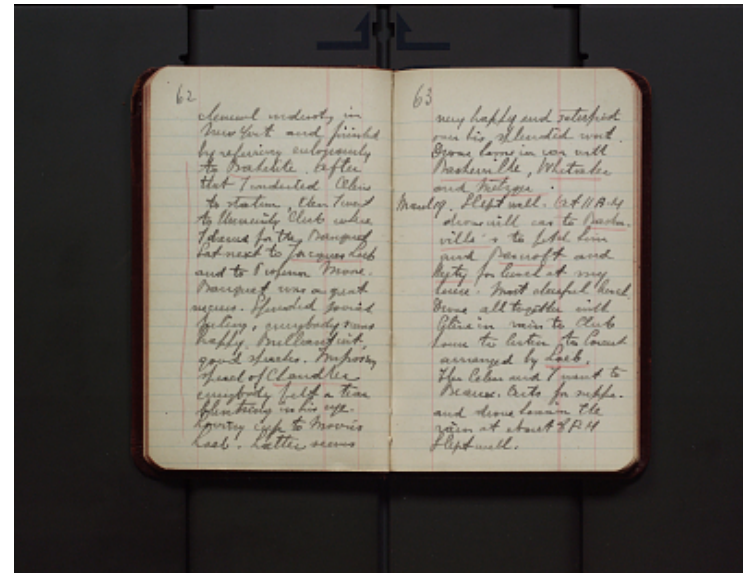 62
chemical industry in
New York and finished
by referring eulogiously
to Bakelite. After
that I conducted Celine
to station, then I went
to University Club where
I dressed for the Banquet
Sat next to Jacques Loeb
and to Professor Moore.
Banquet was a great
success. Splendid jovial
feeling, everybody seems
happy. Brilliant wit,
good speeches. Imposing
speech of Chandler
everybody felt a tear
in his eye.
Loving cup to Morris
Loeb. Latter seems
63
very happy and satisfied
over his splendid work.
Drove home in car with
Baskerville, Whitaker
and Metzger.
March 19. Slept well. At 11 A.M
drove with car to Basker-
ville's to fetch him
and Bancroft and
for lunch at my
house. Most cheerful lunch.
Drove all together with
Celine in rain to Club
house to listen to Concert
arranged by Loeb.
Then Celine and I went to
Beaux-Arts for supper
and drove home in the
rain at about 9 P.M
Slept well.